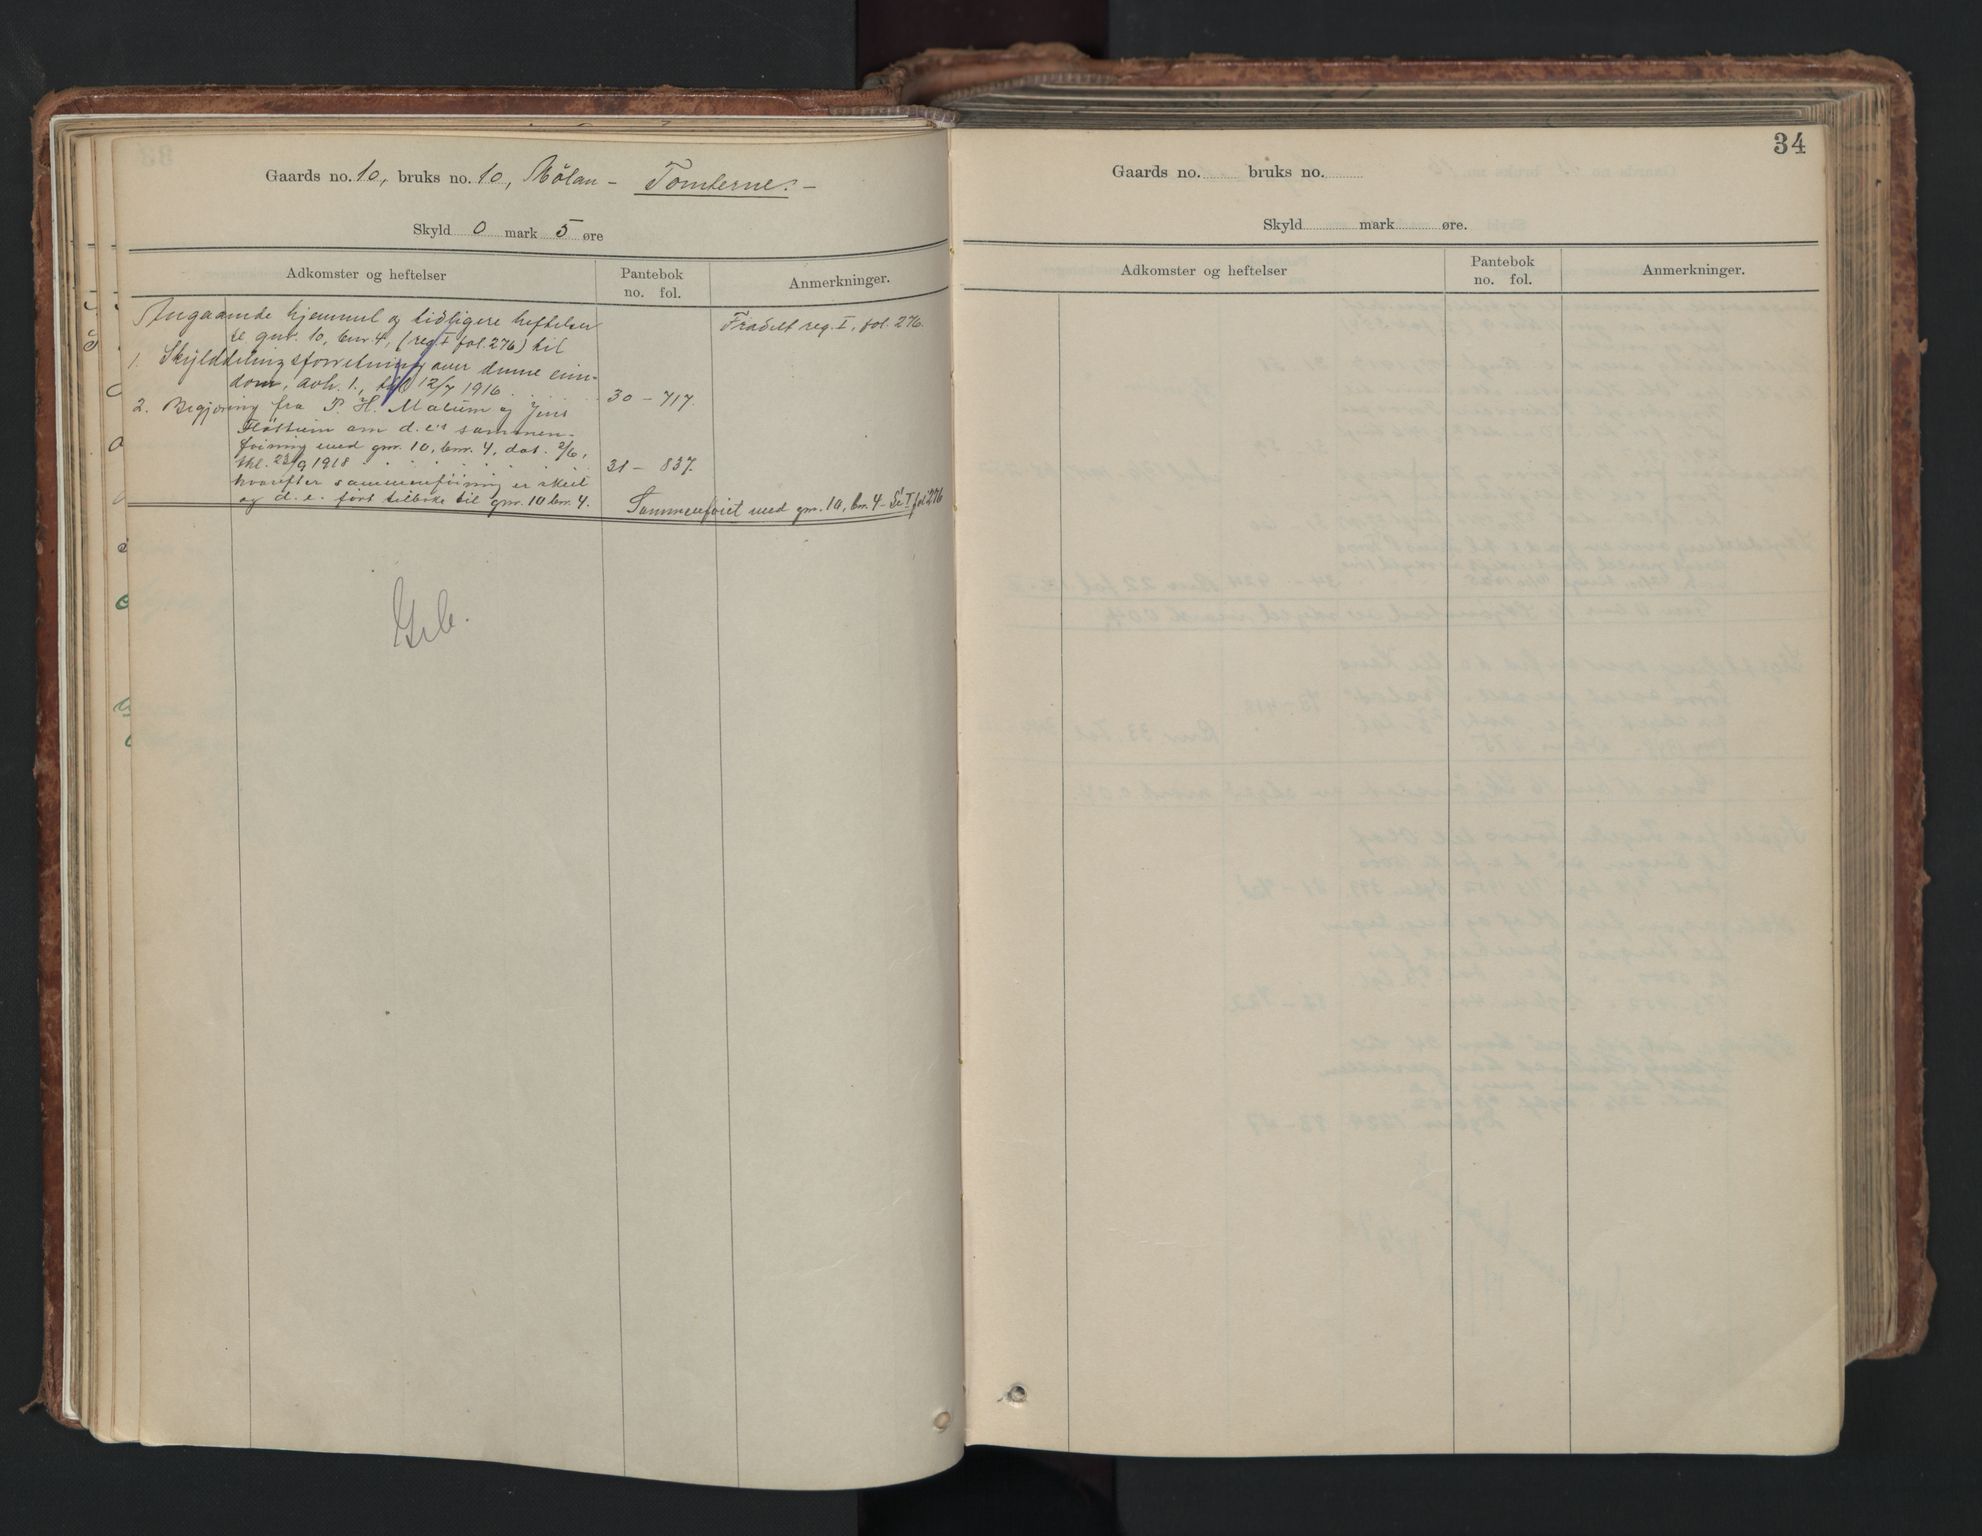 Gaards no. 10, bruks no. 10, Mölan - Tomterne. -
Skyld 0 mark 5 øre
Adkomster og heftelser
Pantebok
no. fol.
Anmerkninger.
Angaaende hjemmel og tidligere heftelser
se gnr. 10, bnr. 4, (reg. I fol. 276) til
Fraskilt reg. I, fol. 276.
1. Skylddelingsforretning over denne eien-
dom, avh. 1., tgl. 12/7 1916
30 - 717.
2. Begjæring fra P. H. Malum og Jens
Flöttum om d. e's sammen-
föining med gnr. 10, bnr. 4, dat. 2/6,
thl. 23/9 1918
31 - 837.
hvorefter sammenföining er skeet
og d. e. fört tilbake til gnr. 10 bnr. 4.
Sammenföiet med gnr. 10, bnr. 4 - Se I fol 276
34
Gaards no. bruks no.
Skyld mark øre.
Adkomster og heftelser
Pantebok
no. fol.
Anmerkninger.